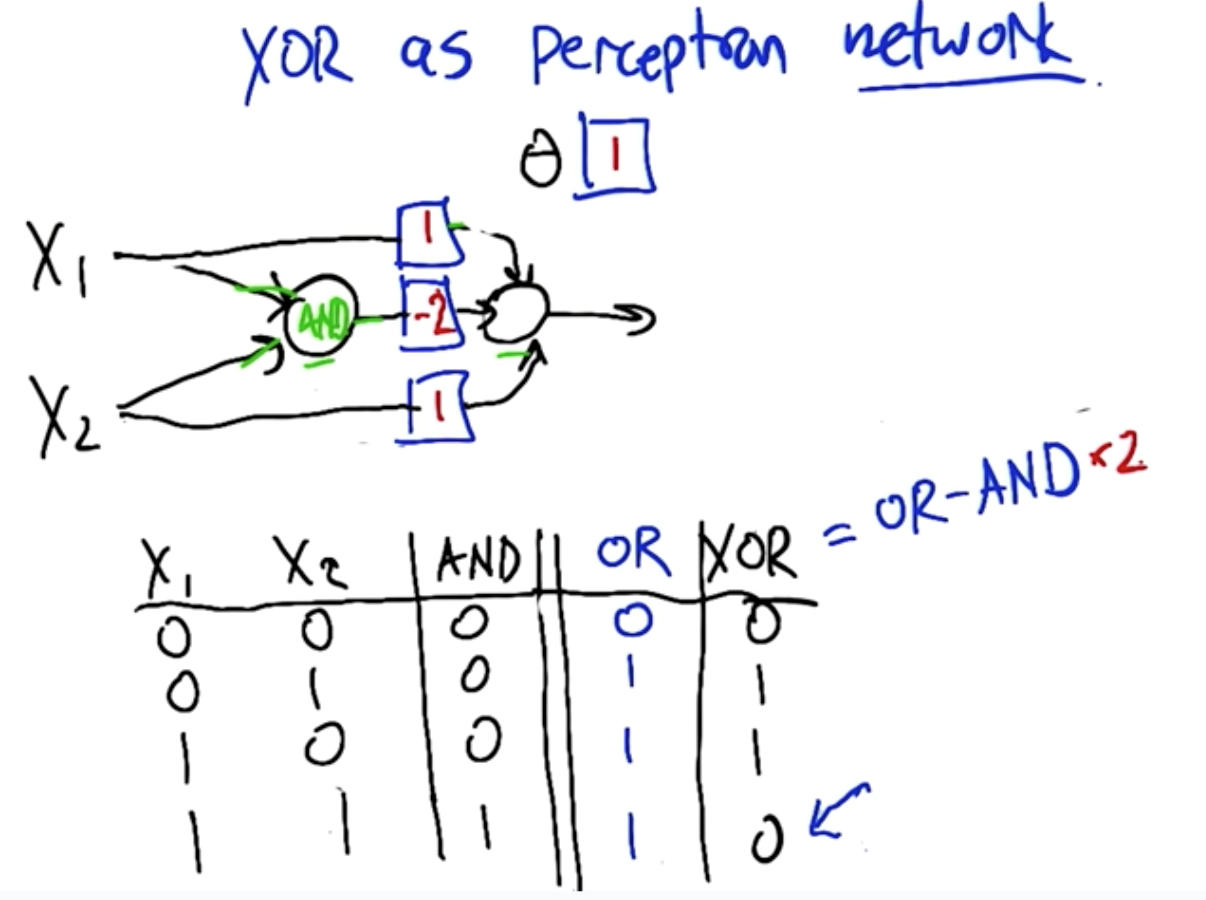 XOR as perceptron network.
θ 1
X1 1
AND -2
X2 1
= OR-AND*2
X1 X2 AND OR XOR
0 0 0 0 0
0 1 0 1 1
1 0 0 1 1
1 1 1 1 0